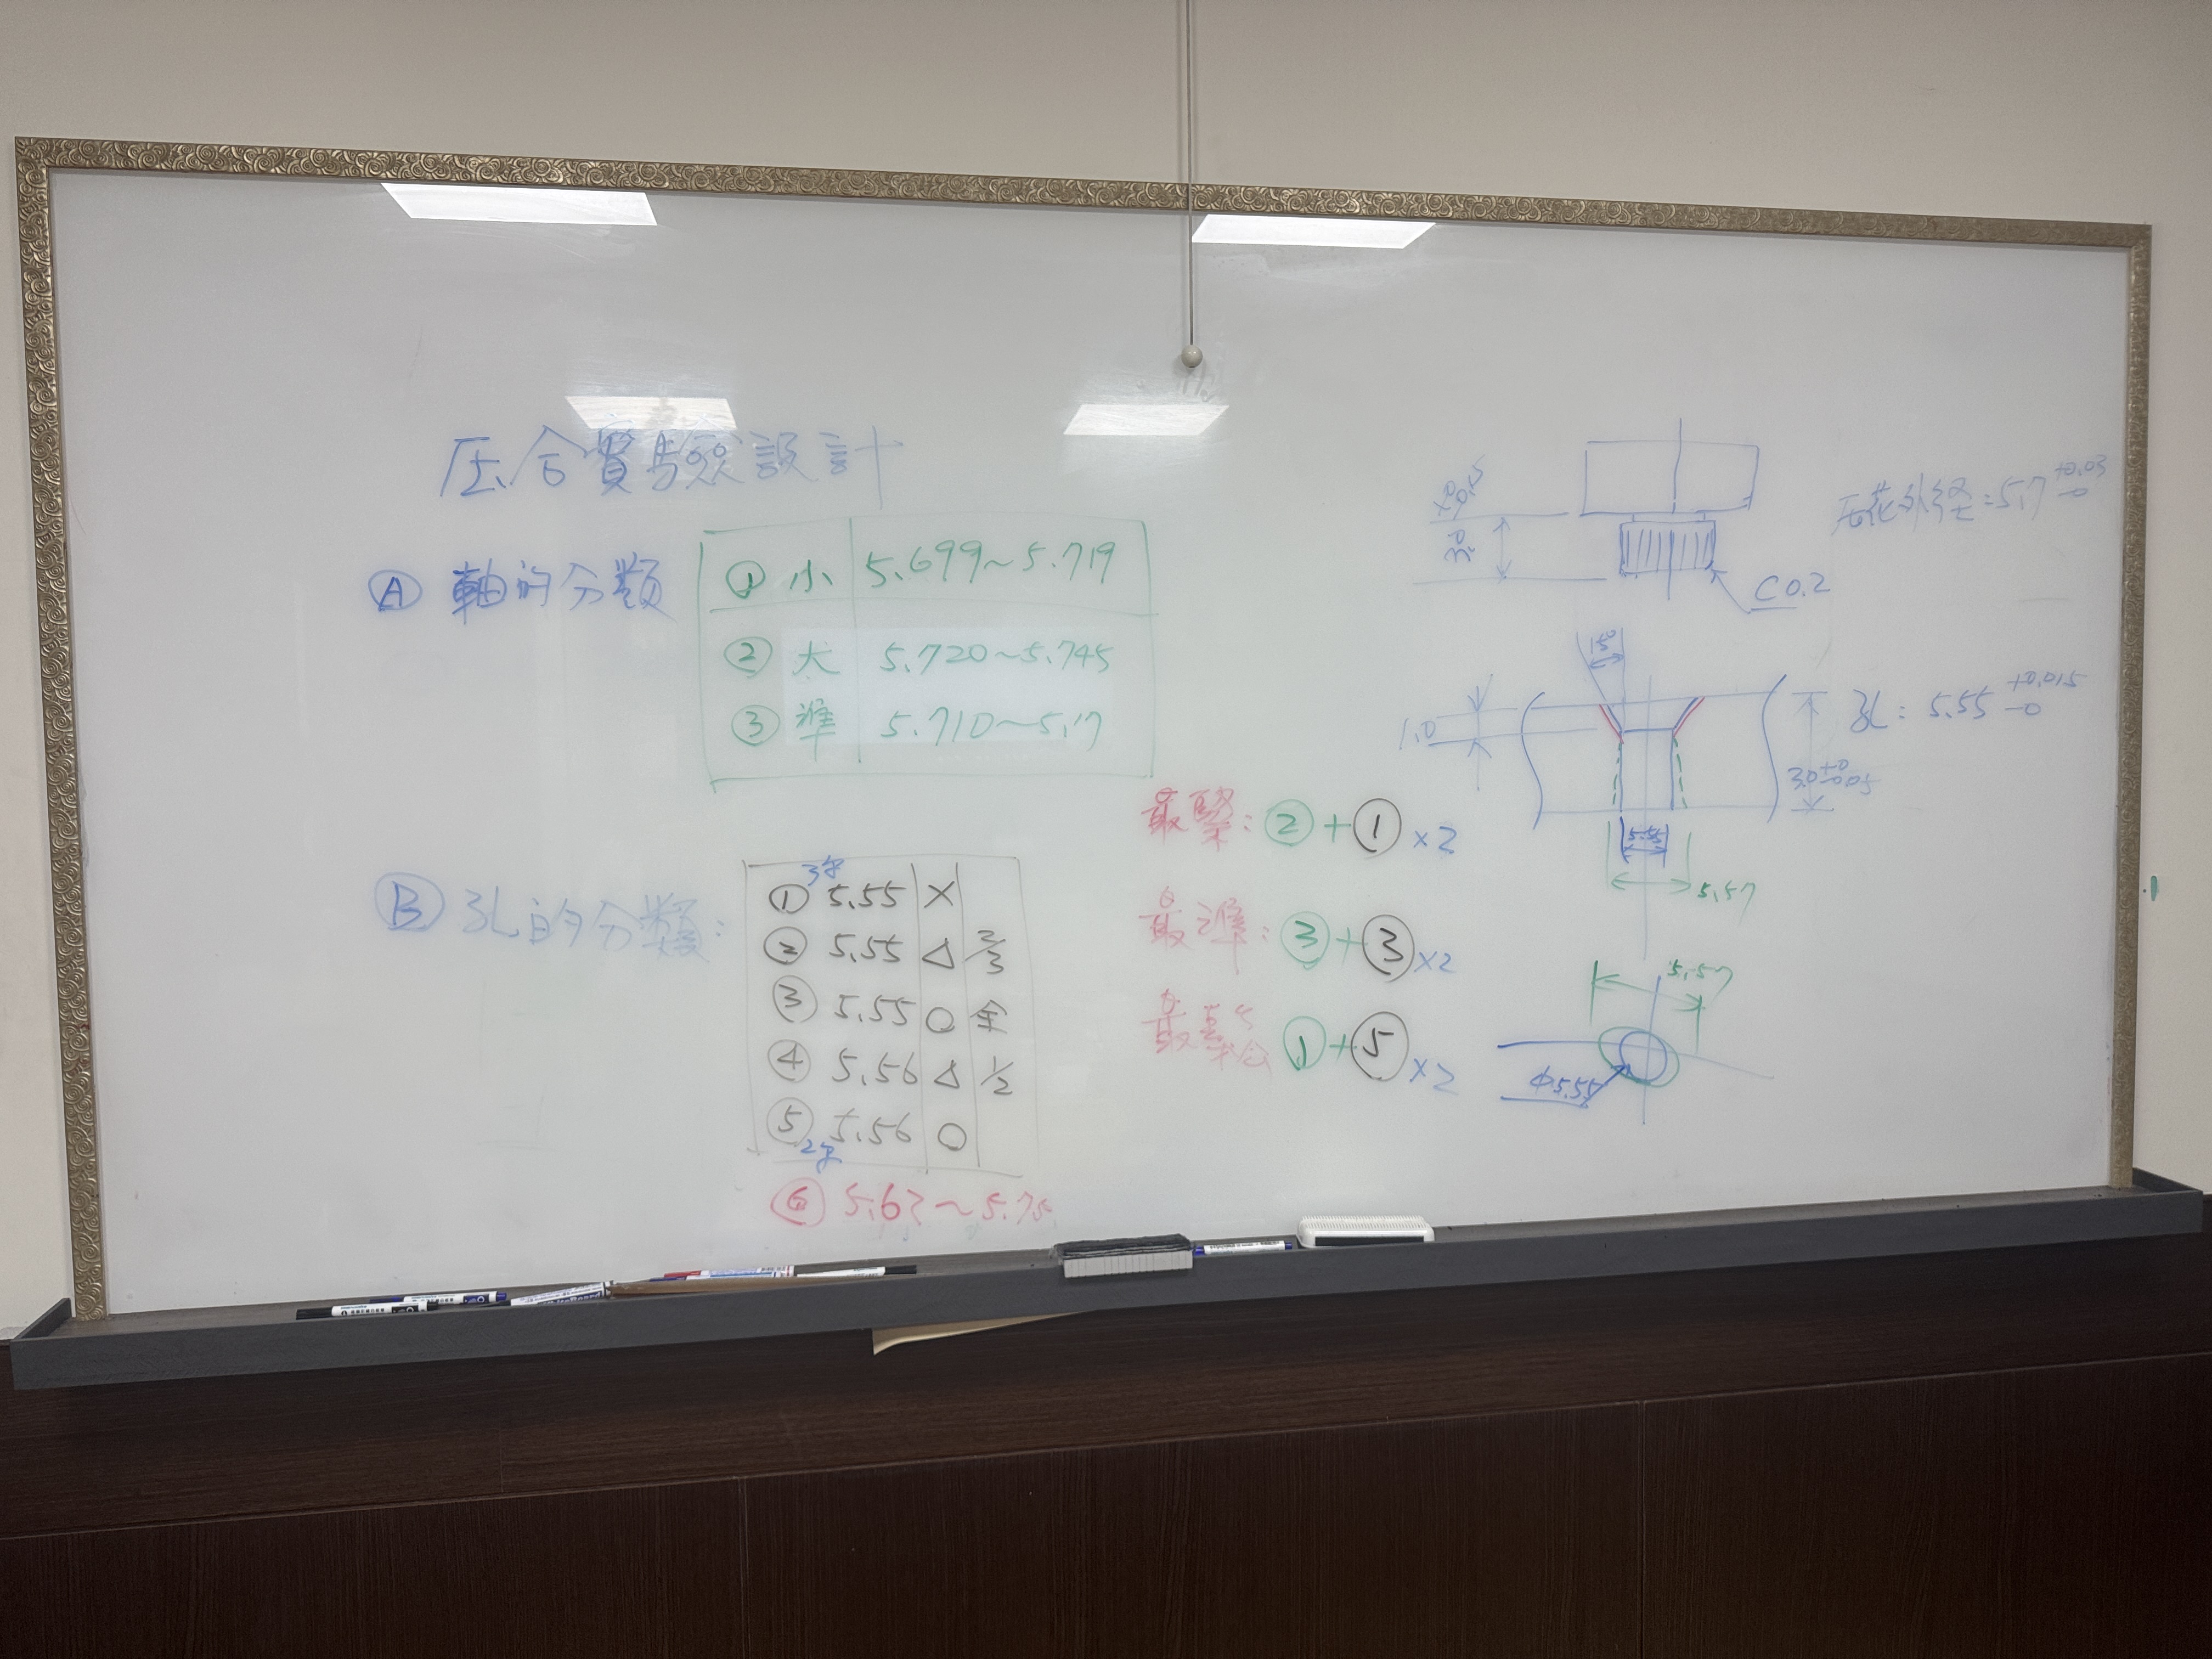 压合實驗設計
Ⓐ 軸的分類
① 小 5.699~5.719
② 大 5.720~5.745
③ 準 5.710~5.17
Ⓑ 孔的分類:
① 5.55 ×
② 5.55 △ 2/3
③ 5.55 ○ 全
④ 5.56 △ 1/2
⑤ 5.56 ○
⑥ 5.62~5.75
最緊: ②+① ×2
最準: ③+③ ×2
①+⑤ ×2
压花外径=5.7 +0.03 -0
C0.2
15°
1.0
孔: 5.55 +0.015 -0
3.0 +0 -0.05
5.55
5.57
5.57
Φ5.55